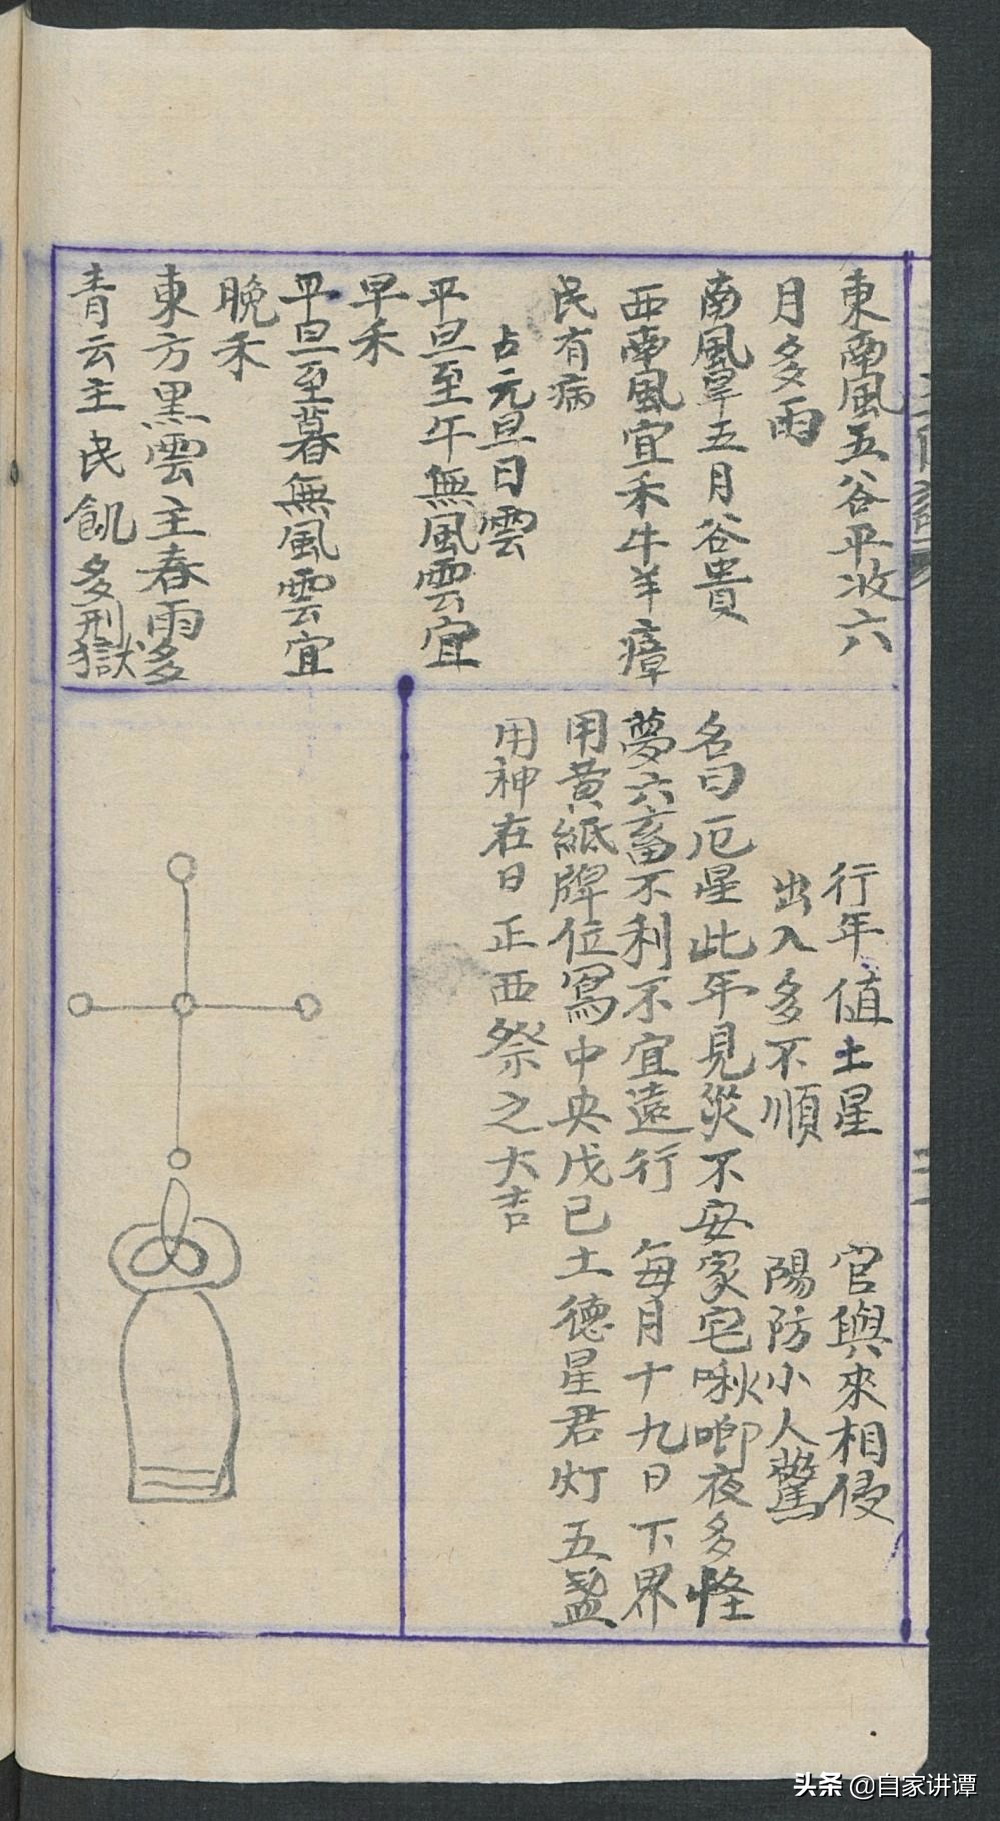 東南風五谷平收六
月多雨
南風旱五月谷貴
西南風宜禾牛羊瘴
民有病
占元旦日雲
平旦至午無風雲宜
早禾
平旦至暮無風雲宜
晚禾
東方黑雲主春雨多
青云主民飢多刑獄
行年值土星
官與來相侵
出入多不順
陽防小人驚
名曰厄星此年見災不安家宅啾唧夜多怪
夢六畜不利不宜遠行 每月十九日下界
用黄紙牌位寫中央戊己土德星君灯五盞
用神在日正西祭之大吉
头条 @自家讲谭